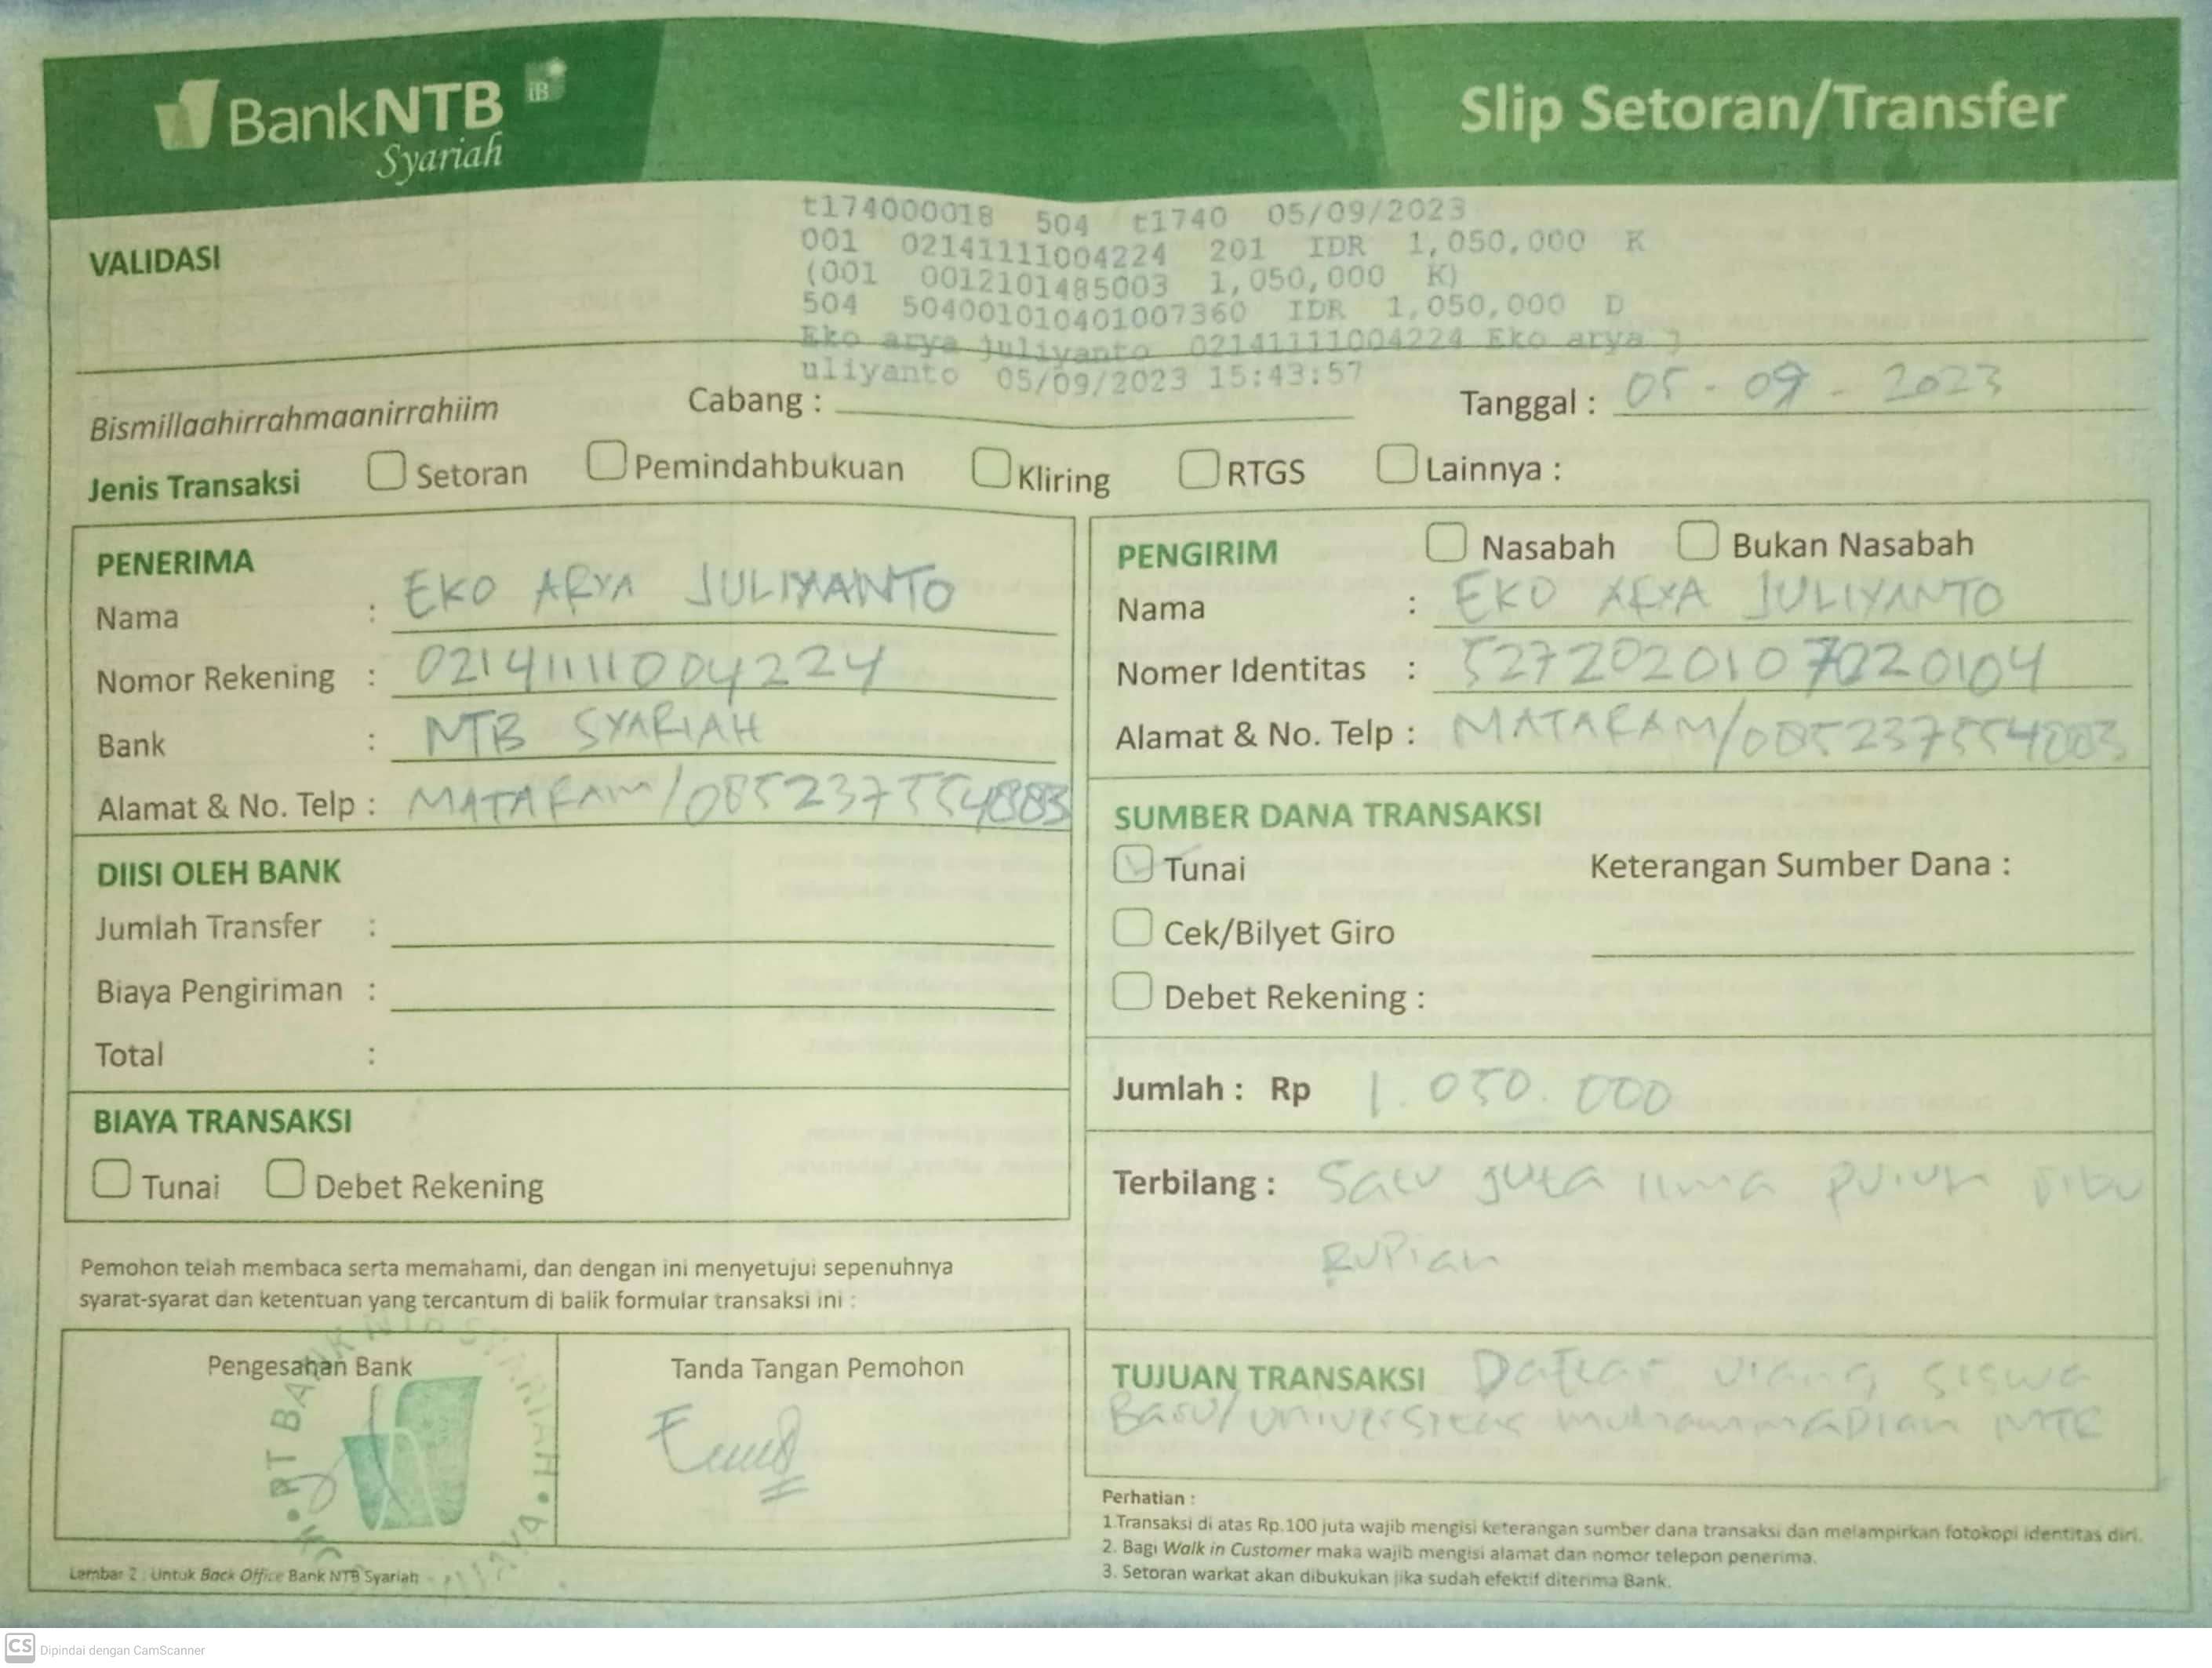 BankNTB iB
Syariah
Slip Setoran/Transfer
VALIDASI
t174000018 504 t1740 05/09/2023
001 02141111004224 201 IDR 1,050,000 K
(001 0012101485003 1,050,000 K)
504 504001010401007360 IDR 1,050,000 D
Eko arya juliyanto 02141111004224 Eko arya j
uliyanto 05/09/2023 15:43:57
Bismillaahirrahmaanirrahiim
Cabang :
Tanggal : 05-09-2023
Jenis Transaksi Setoran Pemindahbukuan Kliring RTGS Lainnya :
PENERIMA
Nama : EKO ARYA JULIYANTO
Nomor Rekening : 02141111004224
Bank : NTB SYARIAH
Alamat & No. Telp : MATARAM/085237554883
DIISI OLEH BANK
Jumlah Transfer :
Biaya Pengiriman :
Total :
BIAYA TRANSAKSI
Tunai Debet Rekening
Pemohon telah membaca serta memahami, dan dengan ini menyetujui sepenuhnya
syarat-syarat dan ketentuan yang tercantum di balik formular transaksi ini :
Pengesahan Bank
PT BANK NTB SYARIAH
Tanda Tangan Pemohon
Lembar 2 : Untuk Back Office Bank NTB Syariah
PENGIRIM Nasabah Bukan Nasabah
Nama : EKO ARYA JULIYANTO
Nomer Identitas : 5272020107020104
Alamat & No. Telp : MATARAM/085237554883
SUMBER DANA TRANSAKSI
Tunai Keterangan Sumber Dana :
Cek/Bilyet Giro
Debet Rekening :
Jumlah : Rp 1.050.000
Terbilang : Satu juta lima puluh ribu
Rupiah
TUJUAN TRANSAKSI Daftar ulang siswa
Baru/universitas muhammadiah MTR
Perhatian :
1.Transaksi di atas Rp.100 juta wajib mengisi keterangan sumber dana transaksi dan melampirkan fotokopi identitas diri.
2. Bagi Walk in Customer maka wajib mengisi alamat dan nomor telepon penerima.
3. Setoran warkat akan dibukukan jika sudah efektif diterima Bank.
CS Dipindai dengan CamScanner